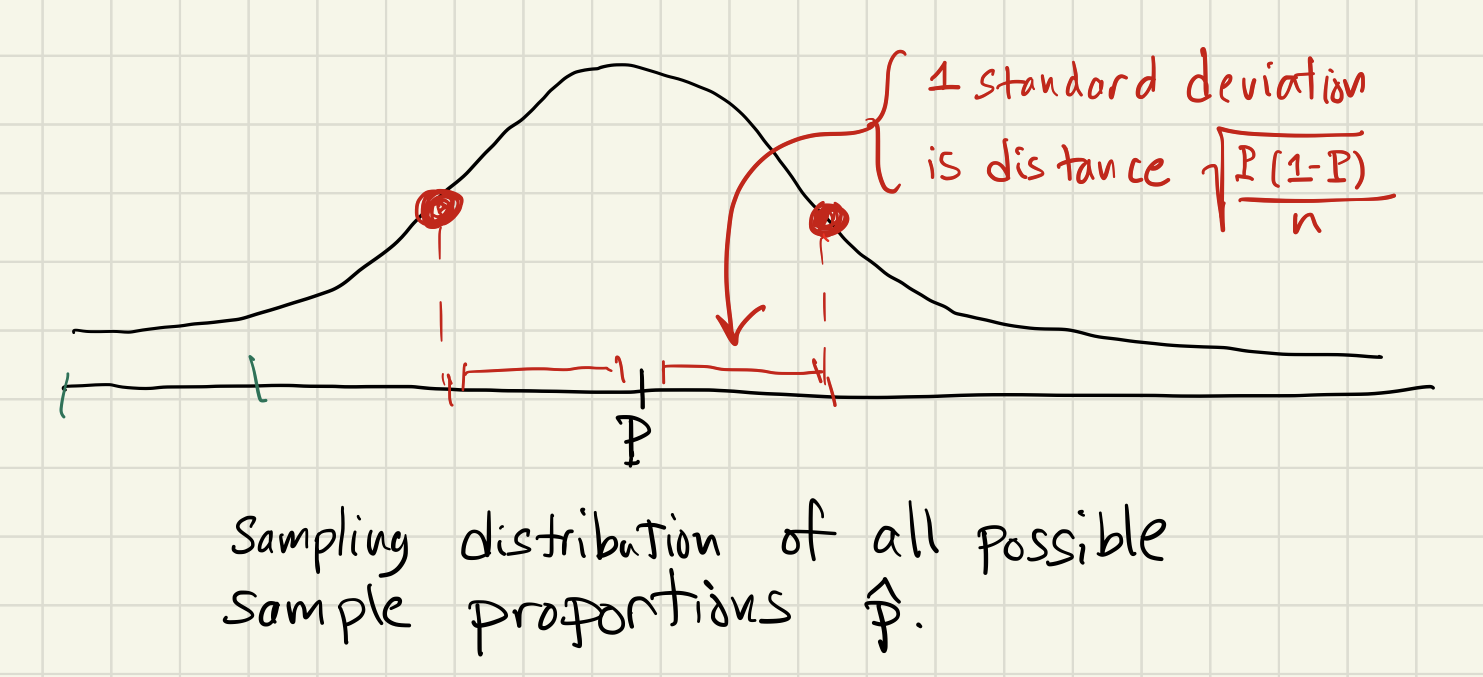 1 standard deviation
is distance √(P(1-P)/n)
P
Sampling distribution of all possible
sample proportions p̂.